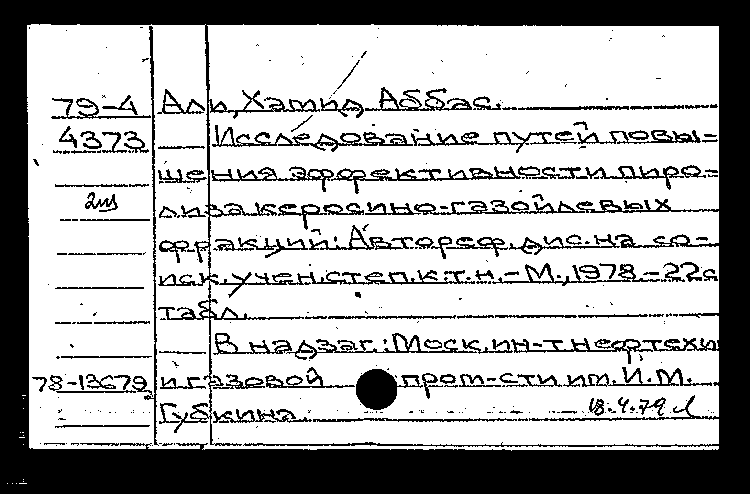 79-4 Али, Хамид Аббас.
4373 Исследование путей повы-
шения эффективности пиро-
2 лиза керосино-газойлевых
фракций: Автореф. дис. на со-
иск. учен. степ. к.т.н. - М., 1978. - 22с
табл.
В надзаг.: Моск. ин-т нефтехи
78-13679 и газовой пром-сти им. И.М.
Губкина.
18.4.79